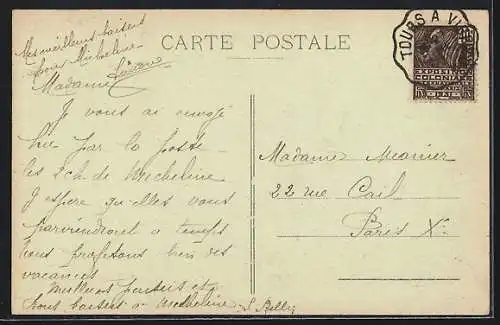 Mes meilleurs baisers
pour Micheline
CARTE POSTALE
TOURS A
Madame
Je vous ai envoyé
hier par la poste
les de Micheline
J'espère qu'elles vous
parviendront à temps
Nous profitons bien des
vacances
Meilleures
Nous baisers à Micheline
Madame Meonier
22 rue Cail
Paris Xe